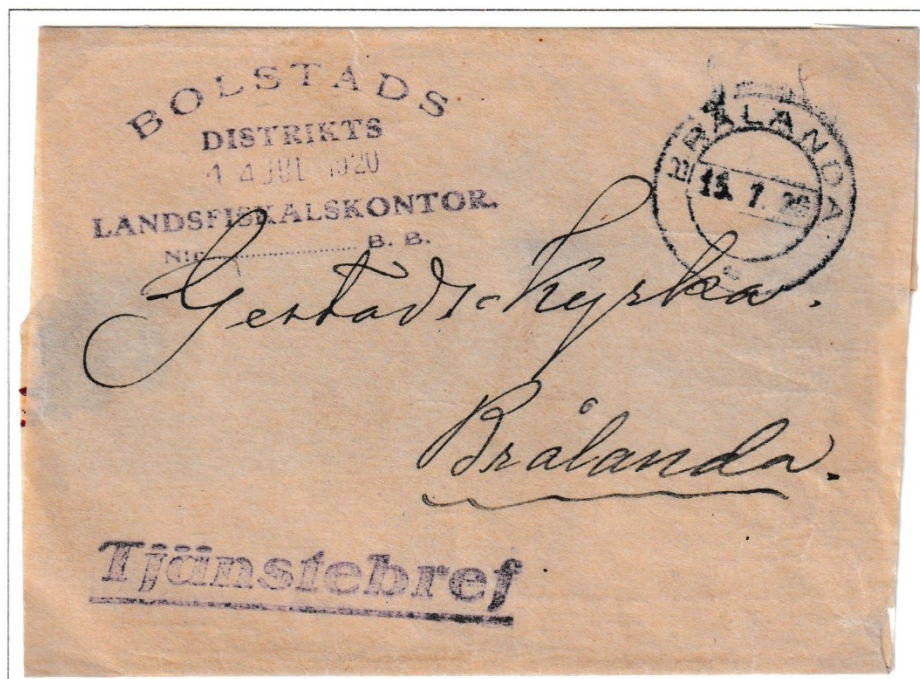 BOLSTADS
DISTRIKTS
14 JUL 1920
LANDSFISKALSKONTOR.
N:r ............... B. B.
BRÅLANDA
15. 7. 20
Gestads Kyrka.
Brålanda.
Tjänstebref